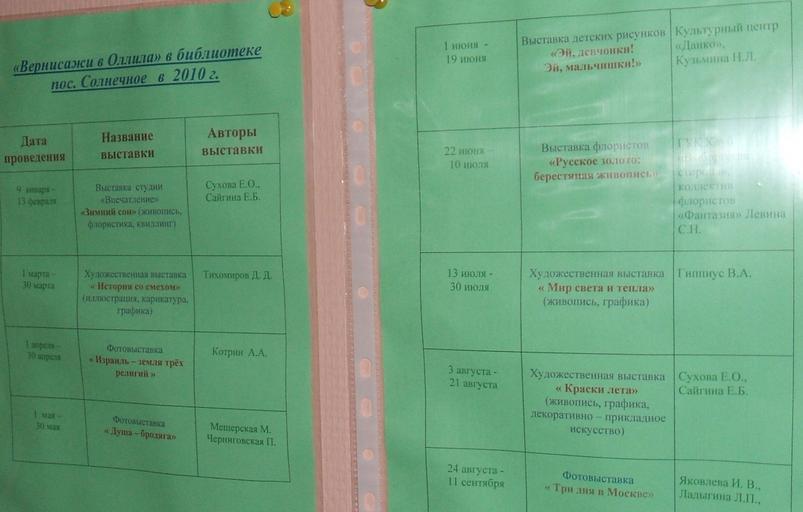 «Вернисажи в Оллила» в библиотеке
пос. Солнечное в 2010 г.
Дата
проведения
Название
выставки
Авторы
выставки
9 января –
13 февраля
Выставка студии
«Впечатление»
«Зимний сон» (живопись,
флористика, квиллинг)
Сухова Е.О.,
Сайгина Е.Б.
1 марта –
30 марта
Художественная выставка
« История со смехом»
(иллюстрация, карикатура,
графика)
Тихомиров Д. Д.
1 апреля –
30 апреля
Фотовыставка
« Израиль – земля трёх
религий »
Котрин А.А.
1 мая –
30 мая
Фотовыставка
« Душа – бродяга»
Мещерская М.
Черниговская П.
1 июня -
19 июня
Выставка детских рисунков
«Эй, девчонки!
Эй, мальчишки!»
Культурный центр
«Данко»,
Кузьмина Н.Л.
22 июня –
10 июля
Выставка флористов
«Русское золото:
берестяная живопись»
ГУК
коллектив
флористов
«Фантазия» Левина
С.Н.
13 июля -
30 июля
Художественная выставка
« Мир света и тепла»
(живопись, графика)
Гиппиус В.А.
3 августа -
21 августа
Художественная выставка
« Краски лета»
(живопись, графика,
декоративно – прикладное
искусство)
Сухова Е.О.,
Сайгина Е.Б.
24 августа -
11 сентября
Фотовыставка
« Три дня в Москве»
Яковлева И. В.,
Ладыгина Л.П.,